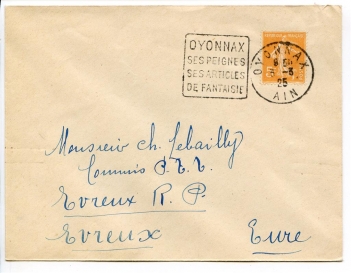 OYONNAX
SES PEIGNES
SES ARTICLES
DE FANTAISIE
OYONNAX
25
AIN
Monsieur Ch. Lebailly
Commis P.T.T.
Evreux R. P.
Evreux Eure